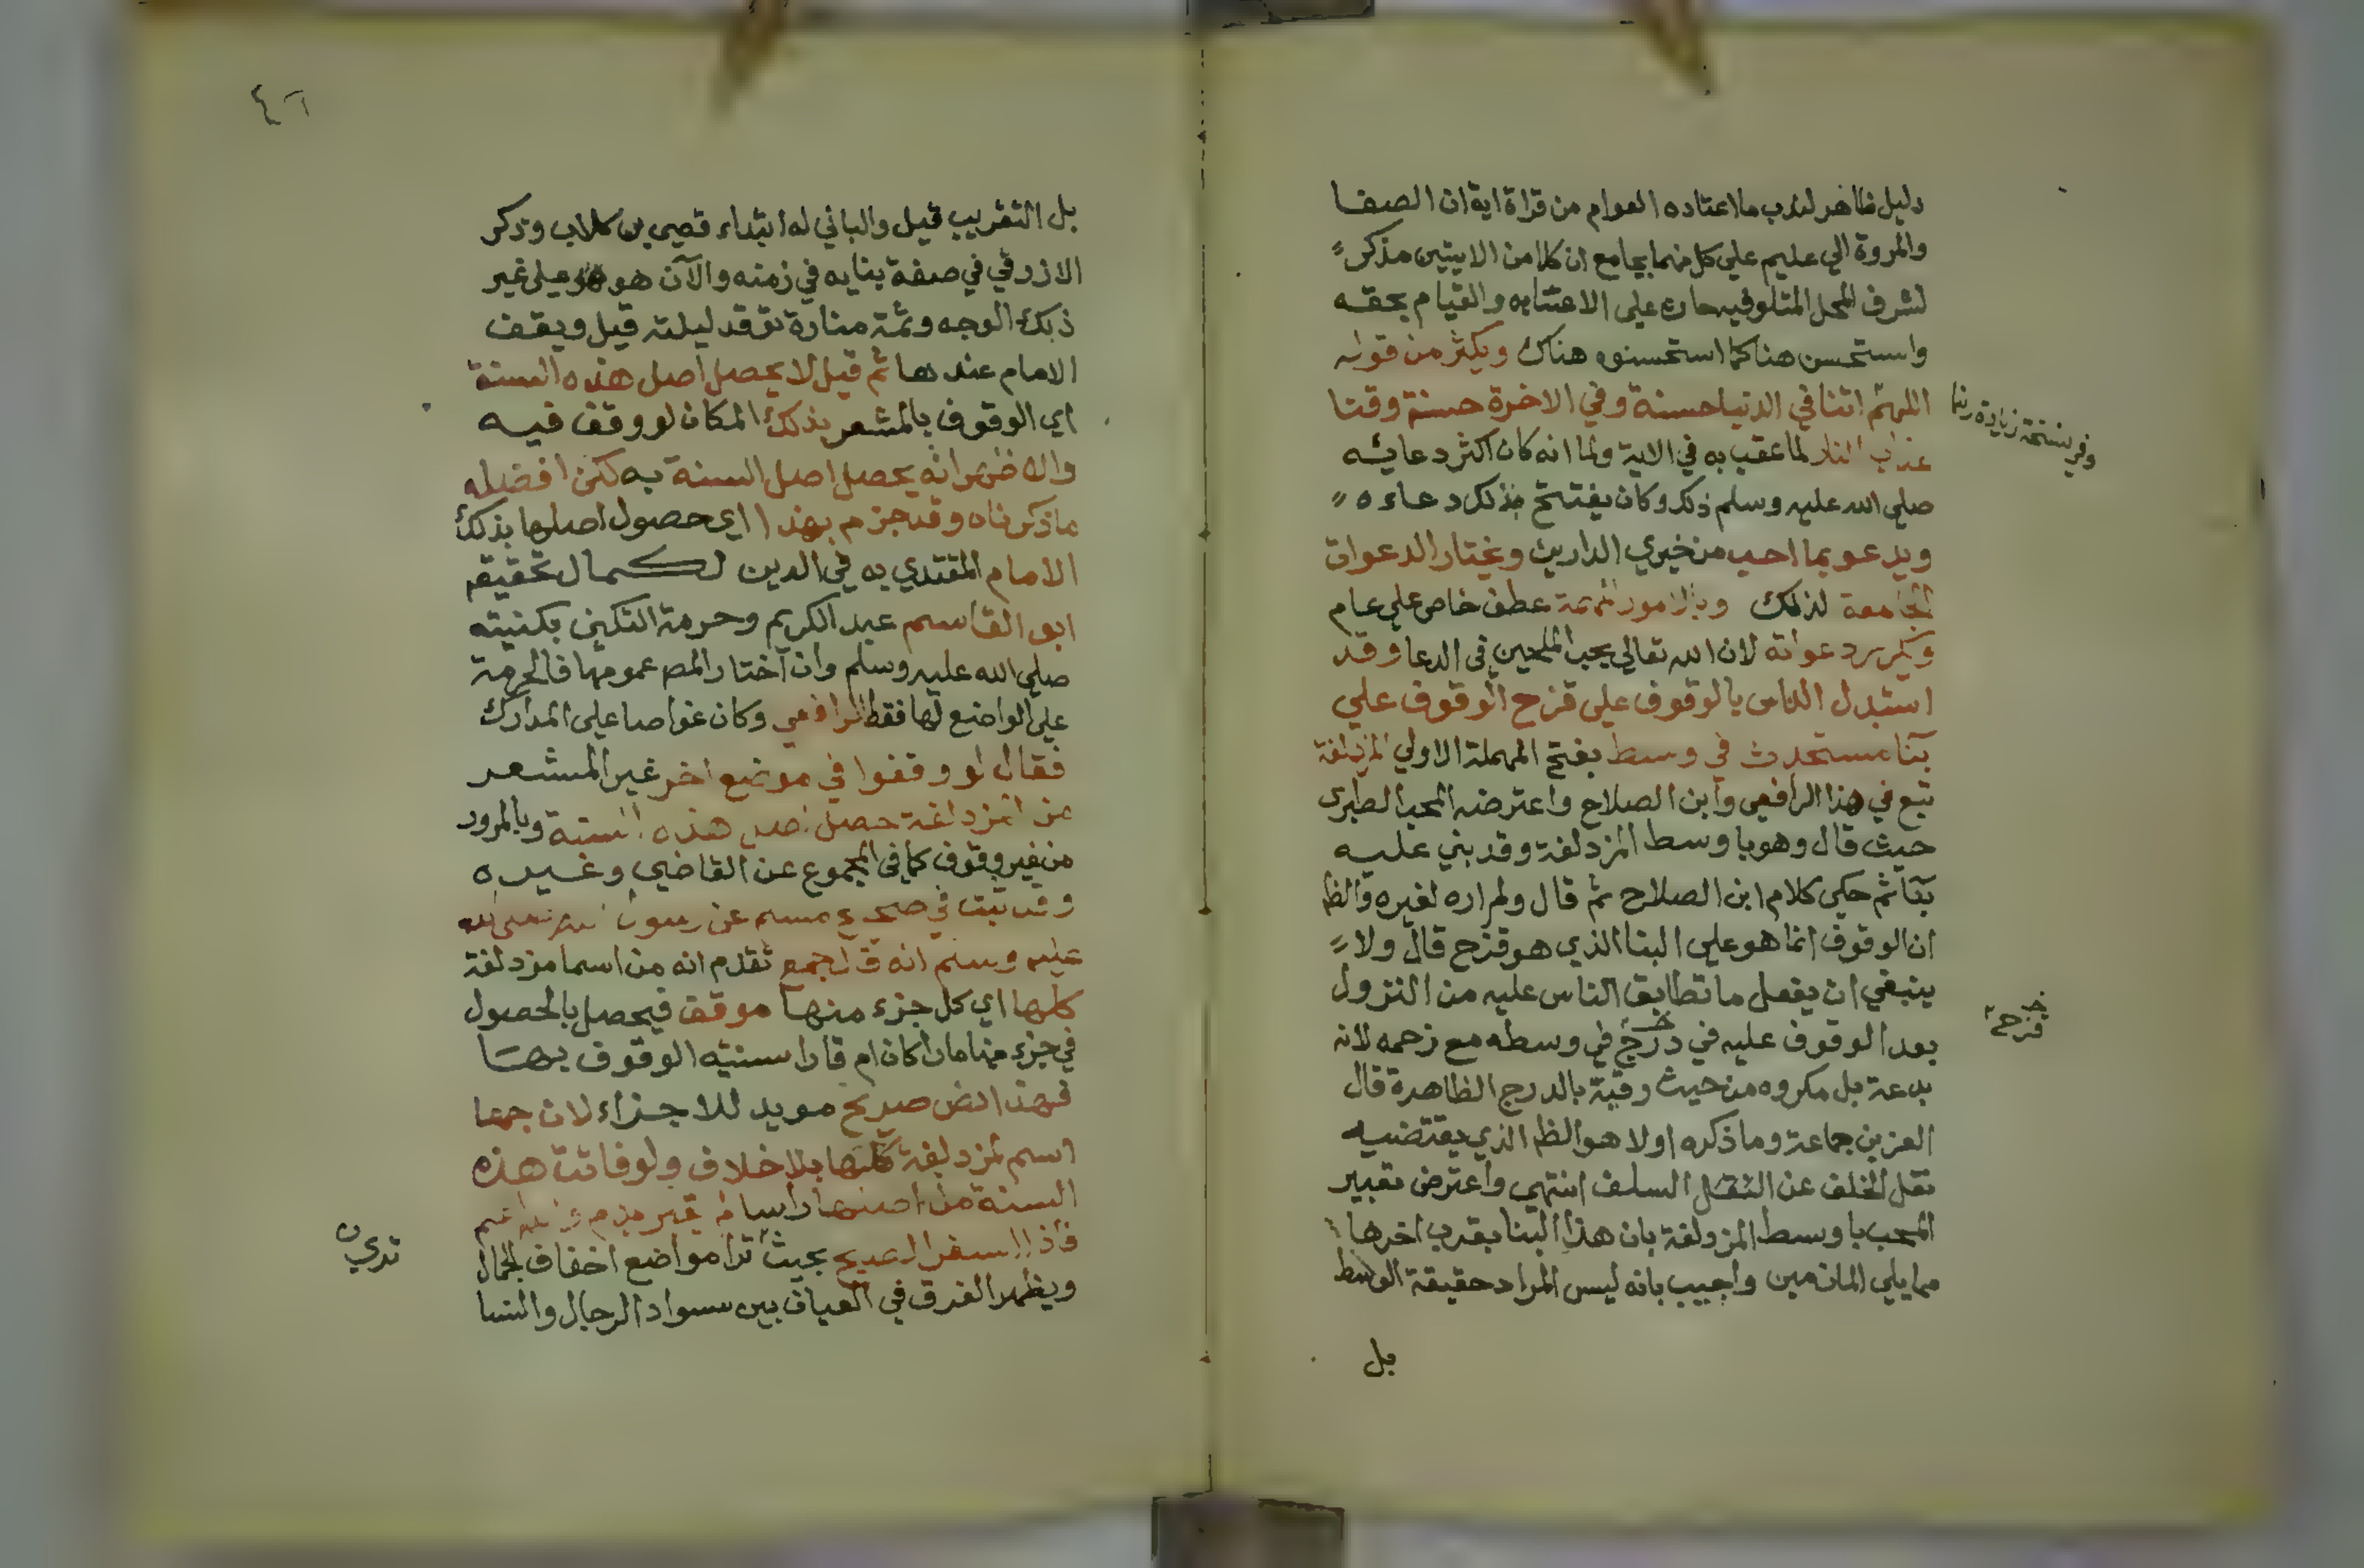 دليل ظاهر لندب ما اعتاده العوام من قراة اية ان الصفا
والمروة الي عليم علي كل منهما بجامع ان كلا من الايتين مذكر
لشرف المحل المتلو فيه حاث علي الاعتنا به والقيام بحقه
واستحسن هنا كما استحسنوه هناك ويكثر من قوله
اللهم اتنا في الدنيا حسنة وفي الاخرة حسنة وقنا
وفي نسخة زيادة ربنا
عذاب النار لما عقب به في الاية ولما انه كان اكثر دعايه
صلي الله عليه وسلم ذلك وكان يفتتح بذلك دعاءه
ويدعو بما احب من خيري الدارين ويختار الدعوات
الجامعة لذلك وبالامور المهمة عطف خاص علي عام
ويكرر دعواته لان الله تعالي يحب الملحين في الدعا وقد
استبدل الناس بالوقوف علي قزح الوقوف علي
بنا مستحدث في وسط بفتح المهملة الاولي المزدلفة
تبع في هذا الرافعي وابن الصلاح واعترضه المحب الطبري
حيث قال وهو باوسط المزدلفة وقد بني عليه
بنا ثم حكي كلام ابن الصلاح ثم قال ولم اره لغيره والظ
ان الوقوف انما هو علي البنا الذي هو قزح قال ولا
ينبغي ان يفعل ما تطابق الناس عليه من النزول
بعد الوقوف عليه في درج في وسطه مع زحمه لانه
قزح
بدعة بل مكروه من حيث رقيه بالدرج الظاهرة قال
العز بن جماعة وما ذكره اولا هو الظ الذي يقتضيه
نقل الخلف عن النقل السلف انتهي واعترض تعبير
المحب باوسط المزدلفة بان هذا البنا بقرب اخرها
مما يلي المازمين واجيب بانه ليس المراد حقيقة الوسط
بل
٤٦
بل التقريب قيل والباني له ابتداء قصي بن كلاب وذكر
الازرقي في صفة بنايه في زمنه والآن هو علي غير
ذلك الوجه وثمة منارة توقد ليلته قيل ويقف
الامام عندها ثم قيل لا يحصل اصل هذه السنة
اي الوقوف بالمشعر بذلك المكان لو وقف فيه
والاظهر انه يحصل اصل السنة به لكن افضله
ما ذكرناه وقد جزم بهذا اي حصول اصلها بذلك
الامام المقتدي به في الدين لكمال تحقيقه
ابو القاسم عبد الكريم وحرمة التكني بكنيته
صلي الله عليه وسلم وان اختار المص عمومها فالحرمة
علي الواضع لها فقط الرافعي وكان غواصا علي المدارك
فقال لو وقفوا في موضع اخر غير المشعر
من المزدلفة حصل اصل هذه السنة وبالمرور
من غير وقوف كما في المجموع عن القاضي وغيره
وقد ثبت في صحيح مسلم عن رسول الله صلي الله
عليه وسلم انه قال جمع تقدم انه من اسما مزدلفة
كلها اي كل جزء منها موقف فيحصل بالحصول
في جزء منها مارا كان ام قارا سنيته الوقوف بها
فهذا نص صريح مويد للاجزاء لان جمعا
اسم لمزدلفة كلها بلا خلاف ولو فاتت هذه
السنة من اصلها راسا لم يجبر بدم والله اعلم
فاذا اسفر الصبح بحيث ترا مواضع اخفاف الجمال
تري
ويظهر الفرق في العيان بين سواد الرجال والنسا